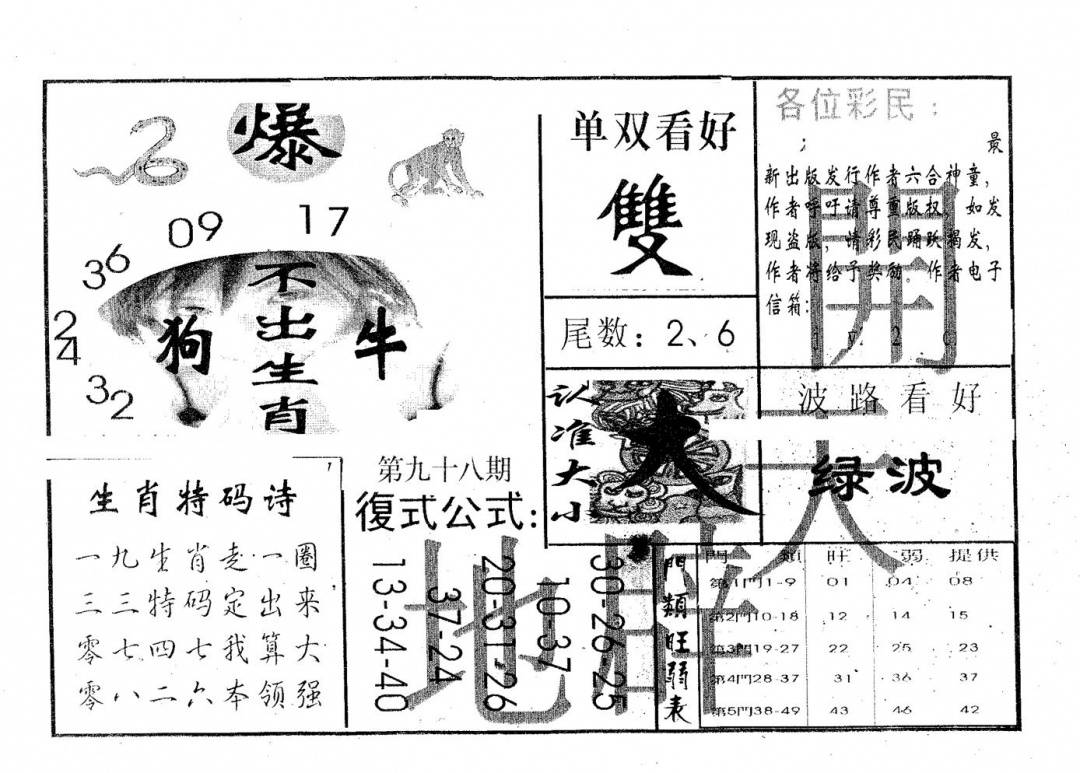 爆
09
17
36
24
32
不出生肖
狗
牛
生肖特码诗
一九生肖走一圈
三三特码定出来
零七四七我算大
零八二六本领强
第九十八期
復式公式:
13-34-40
37-24
20-31-26
10-37
30-26-25
单双看好
雙
尾数:2、6
认准大小
大
各位彩民:
最
新出版发行作者六合神童,
作者呼吁请尊重版权,如发
现盗版,情彩民踊跃揭发,
作者将给予奖励。作者电子
信箱:
波路看好
绿波
開天
地
門類旺弱表
門 類 旺 弱 提供
第1門1-9 01 04 08
第2門10-18 12 14 15
第3門19-27 22 25 23
第4門28-37 31 36 37
第5門38-49 43 46 42